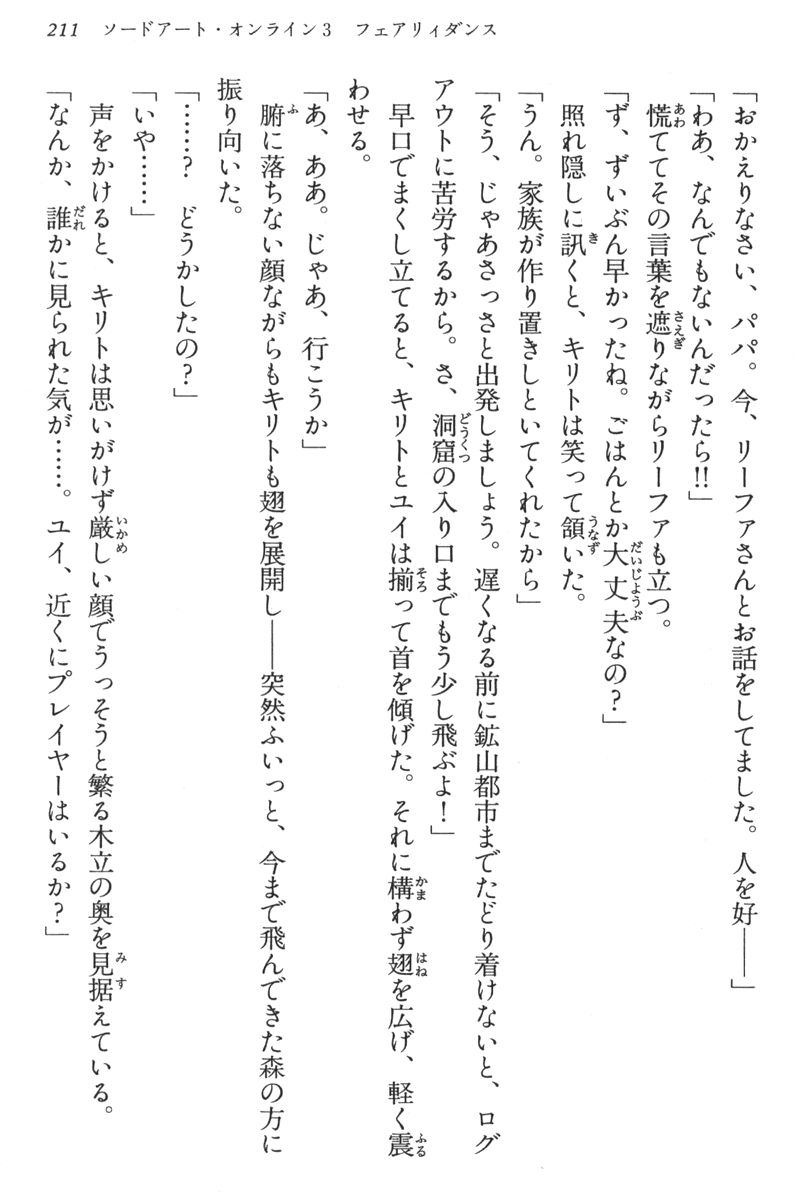 211 ソードアート・オンライン3 フェアリィダンス
「おかえりなさい、パパ。今、リーファさんとお話をしてました。人を好――」
「わあ、なんでもないんだったら!!」
慌ててその言葉を遮りながらリーファも立つ。
「ず、ずいぶん早かったね。ごはんとか大丈夫なの?」
照れ隠しに訊くと、キリトは笑って頷いた。
「うん。家族が作り置きしといてくれたから」
「そう、じゃあさっさと出発しましょう。遅くなる前に鉱山都市までたどり着けないと、ログ
アウトに苦労するから。さ、洞窟の入り口までもう少し飛ぶよ!」
早口でまくし立てると、キリトとユイは揃って首を傾げた。それに構わず翅を広げ、軽く震
わせる。
「あ、ああ。じゃあ、行こうか」
腑に落ちない顔ながらもキリトも翅を展開し――突然ふいっと、今まで飛んできた森の方に
振り向いた。
「……? どうかしたの?」
「いや……」
声をかけると、キリトは思いがけず厳しい顔でうっそうと繁る木立の奥を見据えている。
「なんか、誰かに見られた気が……。ユイ、近くにプレイヤーはいるか?」